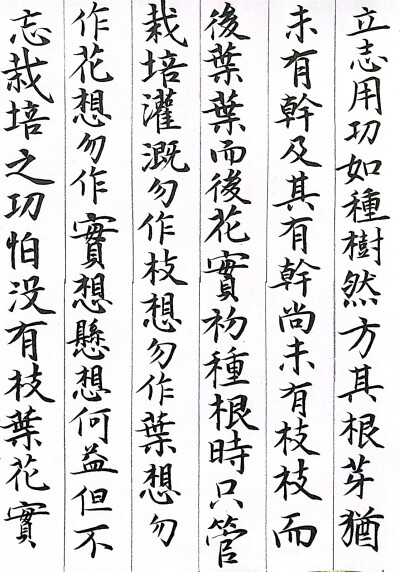 立志用功如種樹然方其根芽猶
未有幹及其有幹尚未有枝枝而
後葉葉而後花實初種根時只管
栽培灌溉勿作枝想勿作葉想勿
作花想勿作實想懸想何益但不
忘栽培之功怕没有枝葉花實